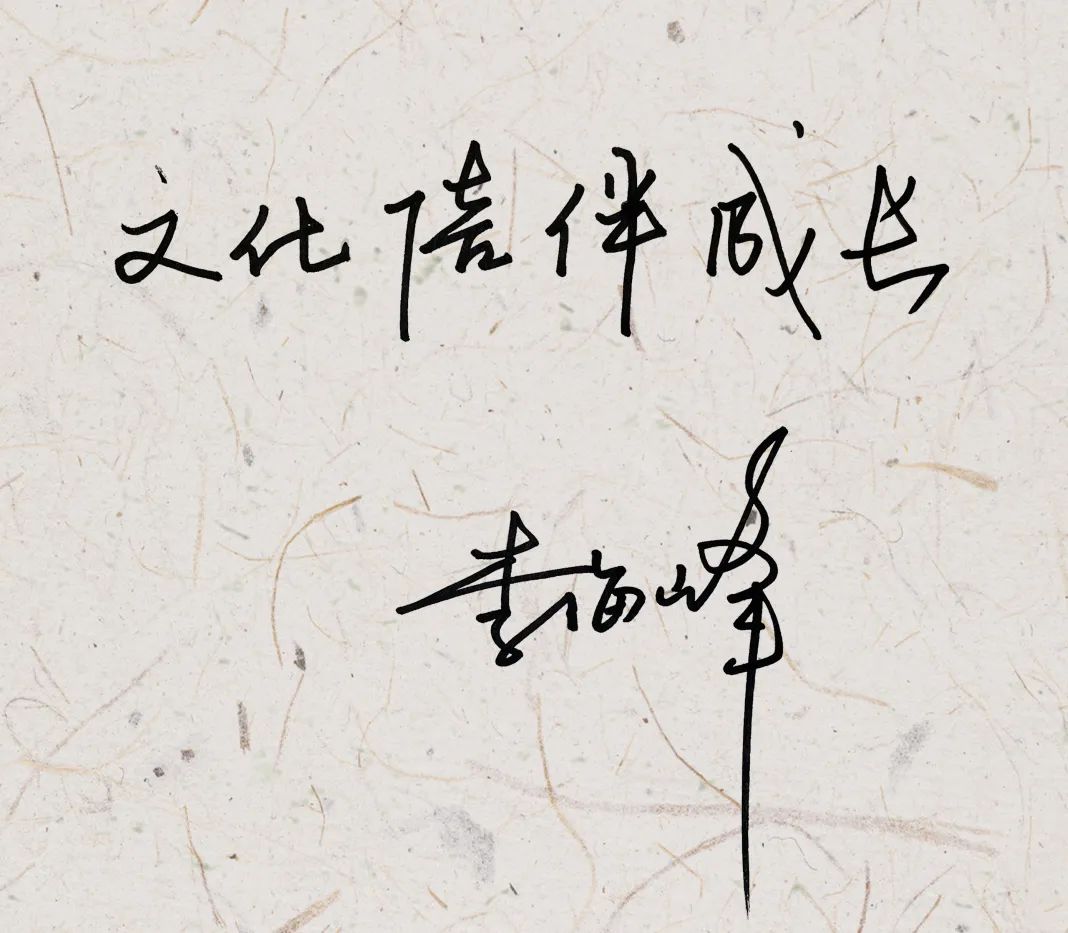 文化陪伴成长
李海峰